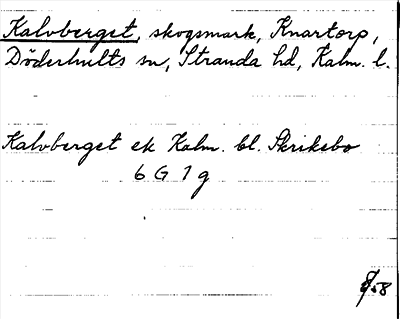 Kalvberget, skogsmark, Knartorp,
Döderhults sn, Stranda hd, Kalm. l.
Kalvberget ek Kalm. bl. Skrikebo
6 G 1 g